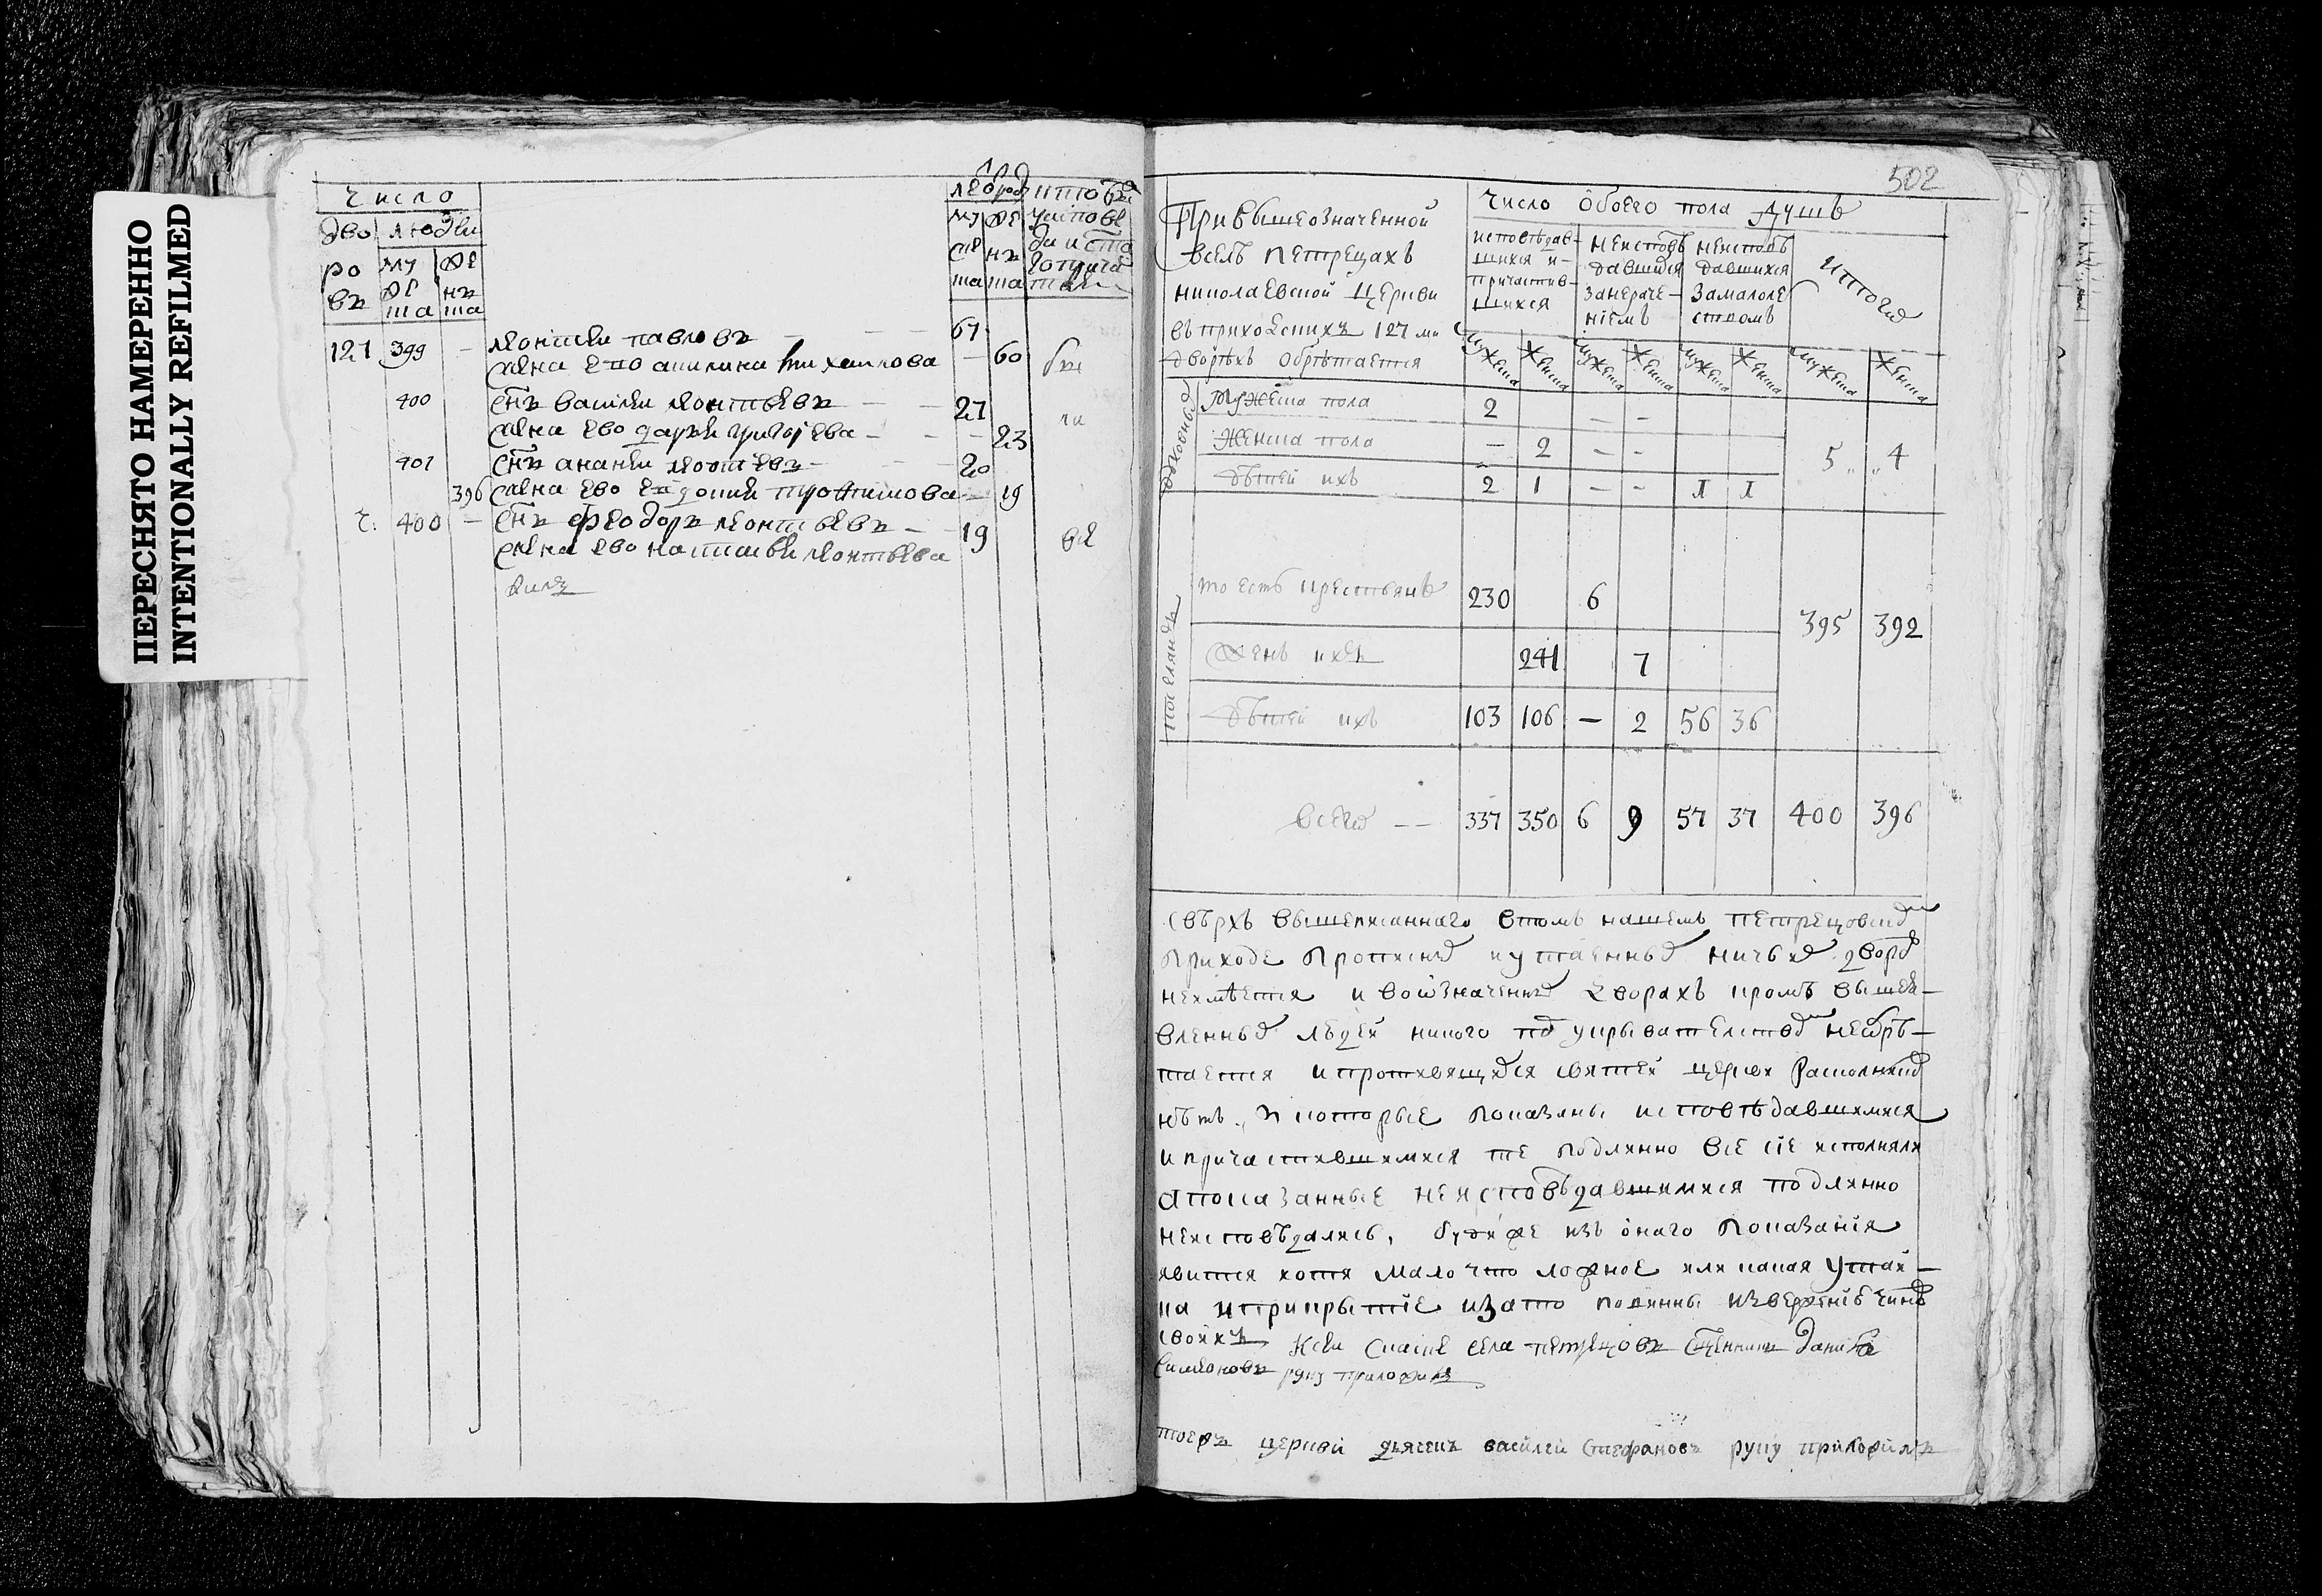 ПЕРЕСНЯТО НАМЕРЕННО
INTENTIONALLY REFILMED
число
дво людеи
ро му же
въ же нъ
ска ска
му же
ска нъ
121 399 — леонтеи павловъ — 67
жена ево акилина михаилова — 60
400 снъ василеи леонтьевъ — 27
жена ево дарья григорьева — 23
401 снъ ананеи леонтьевъ — 20
396 жена ево трофимова — 19
400 — снъ феодоръ леонтьевъ — 19
жена ево настасья леонтьева
502
При вышеозначенной
в селѣ петрецахъ
николаевской церкви
въ приходскихъ 127 ми
дворѣхъ обрѣтается
число обоего пола душъ
исповѣдав-
шихся и
причастив-
шихся
неисповѣ
давшихся
за нераче-
нїемъ
неисповѣ
давшихся
за малолѣ
ством
итого
мужеска женска мужеска женска мужеска женска мужеска женска
духовныхъ
мужеска пола 2 — —
женска пола — 2 — — 5 4
дѣтей ихъ 2 1 — — 1 1
поселянъ
то есть крестьянъ 230 6
395 392
женъ ихъ 241 7
дѣтей ихъ 103 106 — 2 56 36
всего — — 337 350 6 9 57 37 400 396
свѣрхъ вышеписаннаго в томъ нашемъ петрецовском
приходе пропискою и утаенных ничьих дворов
неимѣется и во означенных дворахъ кромѣ вышея-
вленных людей никого под укрывателством необрѣ-
тается и противящихся святей церкви раскольников
нѣтъ, и которые показаны исповѣдавшимися
и причастившимися те подлинно все сїе исполняли
а показанные неисповѣдавшимися подлинно
неисповѣдались, буди же изъ онаго показанїя
явится хотя мало что ложное или какая утай-
ка и прикрытїе и за то повинны изверженїю чинов
своихъ К сеи скаске села петрецовъ сщенникъ данила
симеоновъ руку приложилъ
тоежъ церкви дьячекъ василей стефановъ руку приложилъ